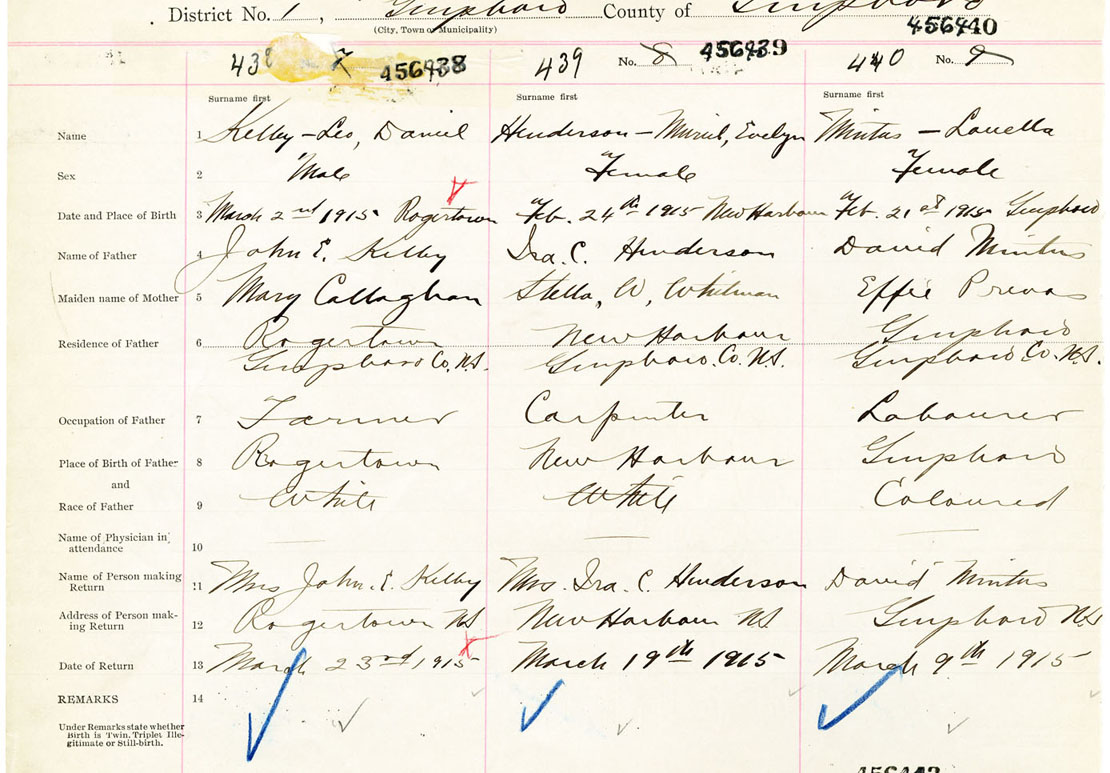 District No. 1, Guysboro County of Guysboro
(City, Town or Municipality)
456440
438 7 456438 439 No. 8 456439 440 No. 9
Surname first Surname first Surname first
Name 1 Kelby - Leo, Daniel Henderson - Muriel, Evelyn Mintus - Louella
Sex 2 Male Female Female
Date and Place of Birth 3 March 2nd 1915 Rogertown Feb. 24th 1915 New Harbour Feb. 21st 1915 Guysboro
Name of Father 4 John E. Kelby Ira. C. Henderson David Mintus
Maiden name of Mother 5 Mary Callaghan Stella, W, Whitman Effie
Residence of Father 6 Rogertown New Harbour Guysboro
Guysboro Co, N.S. Guysboro. Co. N.S. Guysboro Co. N.S.
Occupation of Father 7 Farmer Carpenter Labourer
Place of Birth of Father 8 Rogertown New Harbour Guysboro
and
Race of Father 9 White White Coloured
Name of Physician in
attendance 10
Name of Person making
Return 11 Mrs John. E. Kelby Mrs. Ira. C. Henderson David Mintus
Address of Person mak-
ing Return 12 Rogertown NS New Harbour NS Guysboro NS
Date of Return 13 March 23rd 1915 March 19th 1915 March 9th 1915
REMARKS 14
Under Remarks state whether
Birth is Twin, Triplet Ille-
gitimate or Still-birth.